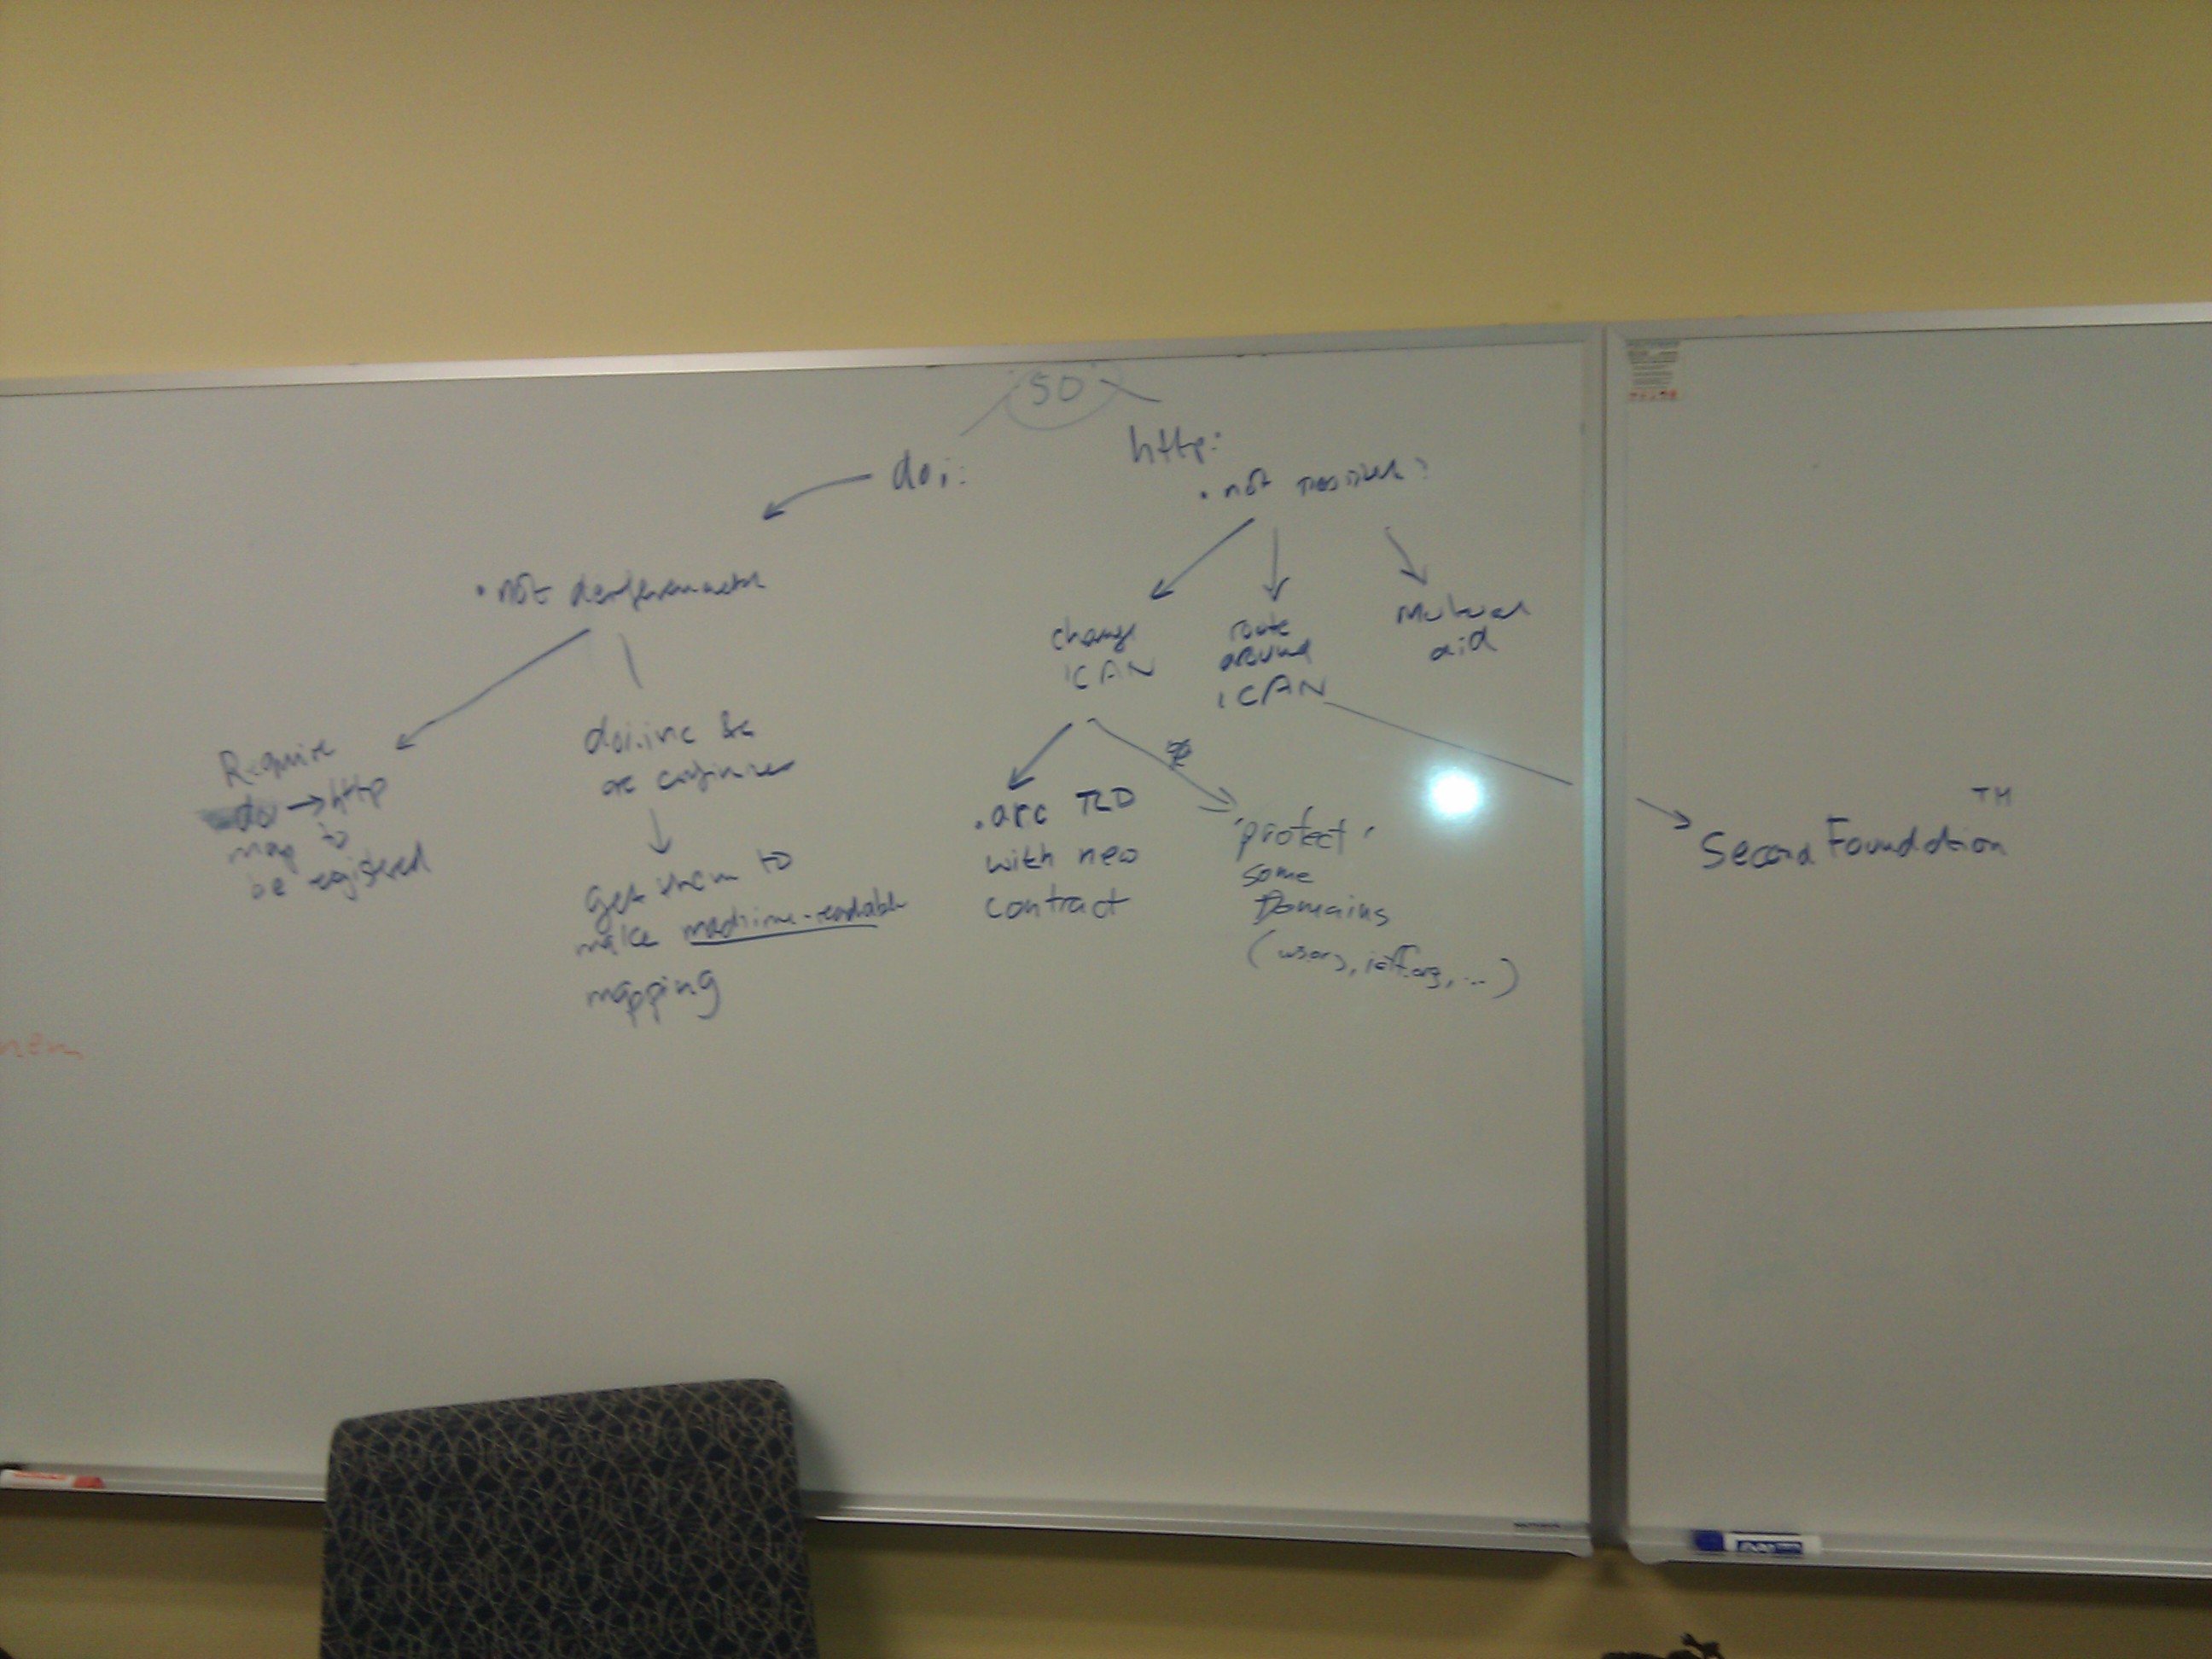 50
doi:
http:
• not possible?
• not dereferenceable
change
ICAN
route
around
ICAN
Mutual
aid
Require
doi → http
map to
be registered
doi.inc
get them to
make machine-readable
mapping
.arc TLD
with new
contract
'protect'
some
Domains
(w3.org, ietf.org, ...)
Second Foundation TM